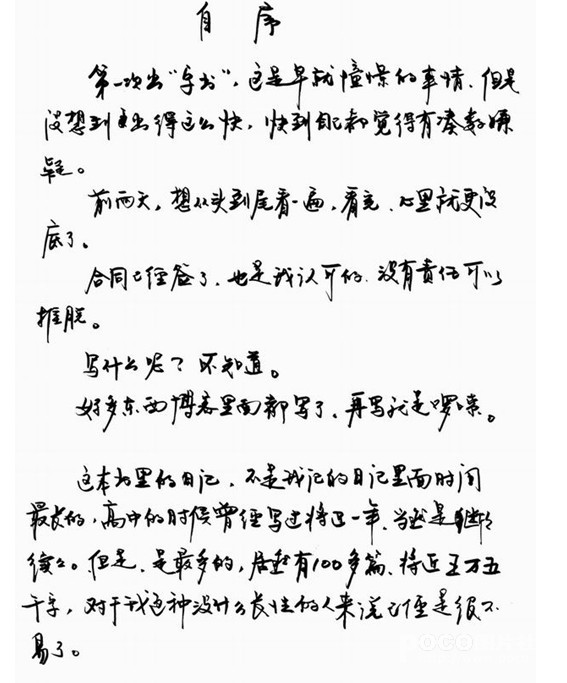 自序
第一次出“专书”，这是早就憧憬的事情，但是
没想到要出得这么快，快到自己都觉得有凑数嫌
疑。
前两天，想从头到尾看一遍，看完，心里就更没
底了。
合同已经签了，也是我认可的，没有责任可以
推脱。
写什么呢？不知道。
好多东西博客里面都写了，再写就是啰嗦。
这本书里的日记，不是我记的日记里面时间
最长的，高中的时候曾经写过将近一年，当然是断断
续续。但是，是最多的，居然有100多篇，将近五万五
千字，对于我这种没什么长性的人来说已经是很不
易了。
POCO